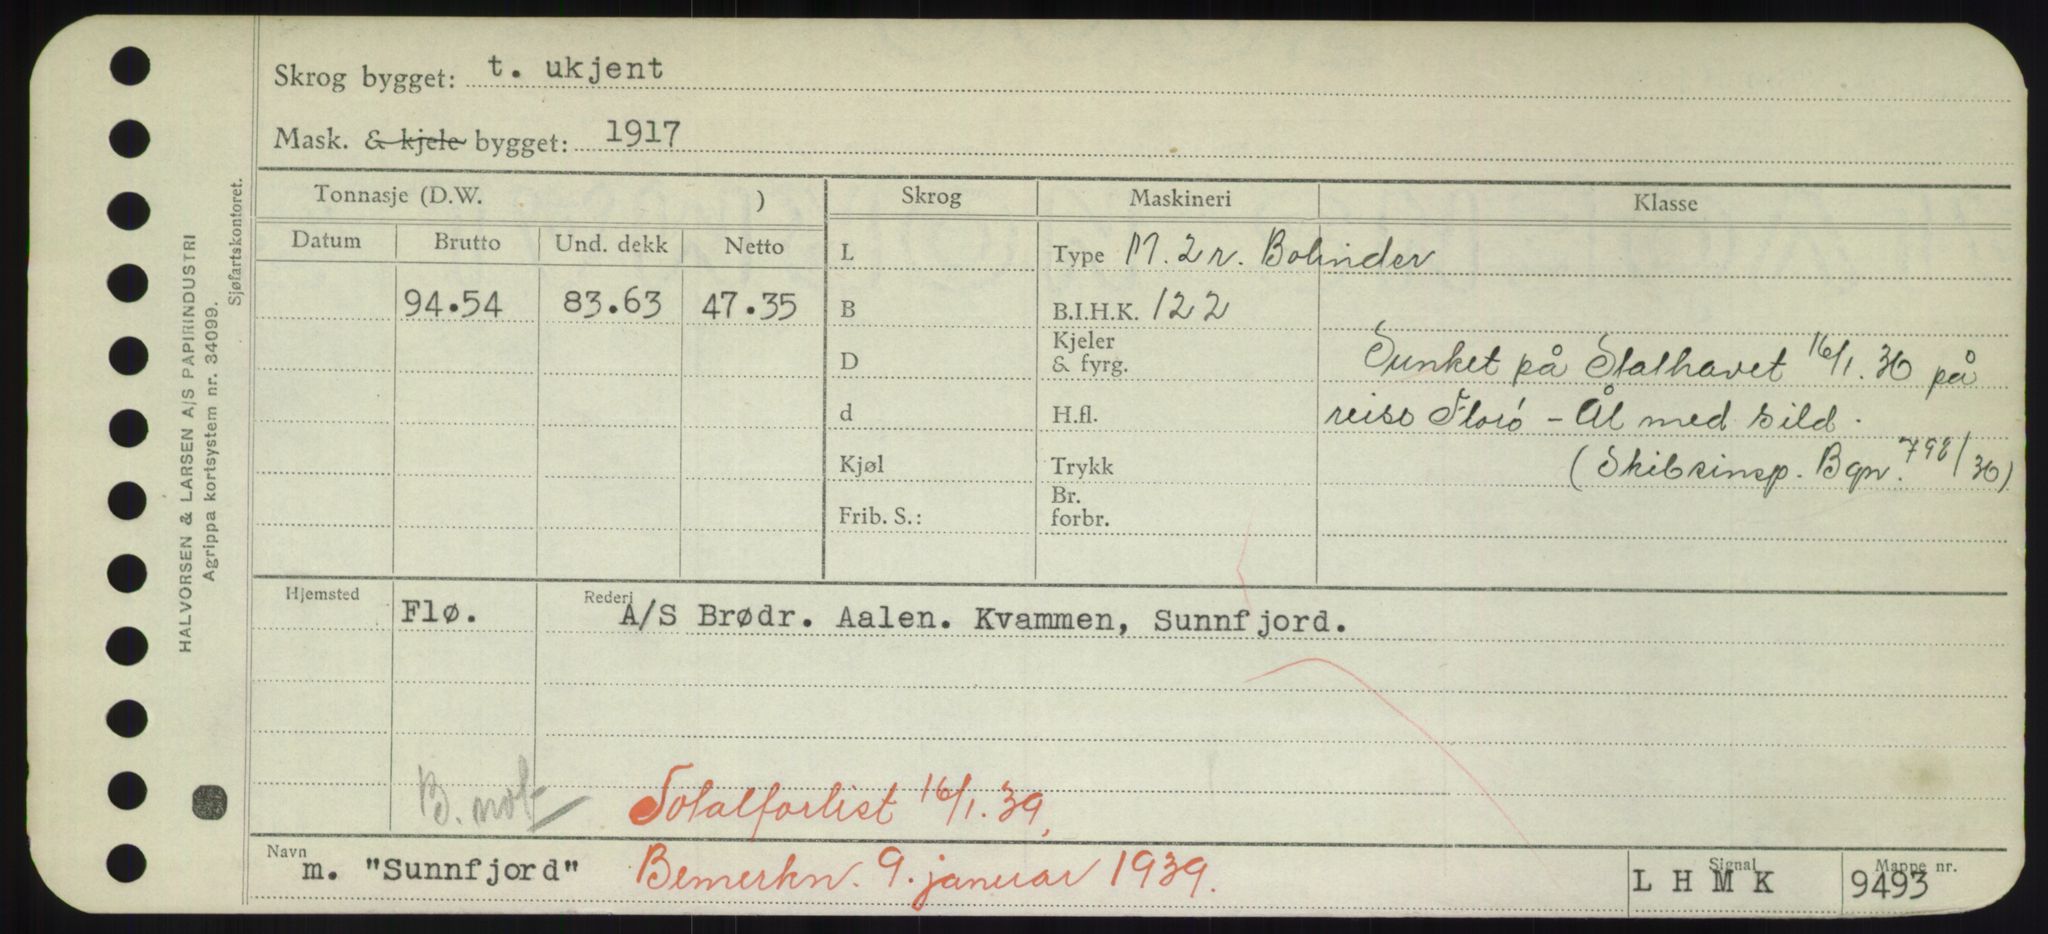 Skrog bygget: t. ukjent
Mask. & kjele bygget: 1917
Tonnasje (D.W. ) Skrog Maskineri Klasse
Datum Brutto Und. dekk Netto L Type M. 2 r. Bolinder
94.54 83.63 47.35 B B.I.H.K. 122
D Kjeler & fyrg. Sunket på Stathavet 16/1. 36 på
d H.fl. reise Florö - Ål med sild.
Kjøl Trykk (Skibsinsp. Bgn. 798/36)
Frib. S.: Br. forbr.
Hjemsted Flø. Rederi A/S Brødr. Aalen. Kvammen, Sunnfjord.
B. not
Totalforlist 16/1. 39.
Navn m. "Sunnfjord" Bemerkn. 9. januar 1939. Signal L H M K Mappe nr. 9493
HALVORSEN & LARSEN A/S PAPIRINDUSTRI
Agrippa kortsystem nr. 34099.
Sjøfartskontoret.